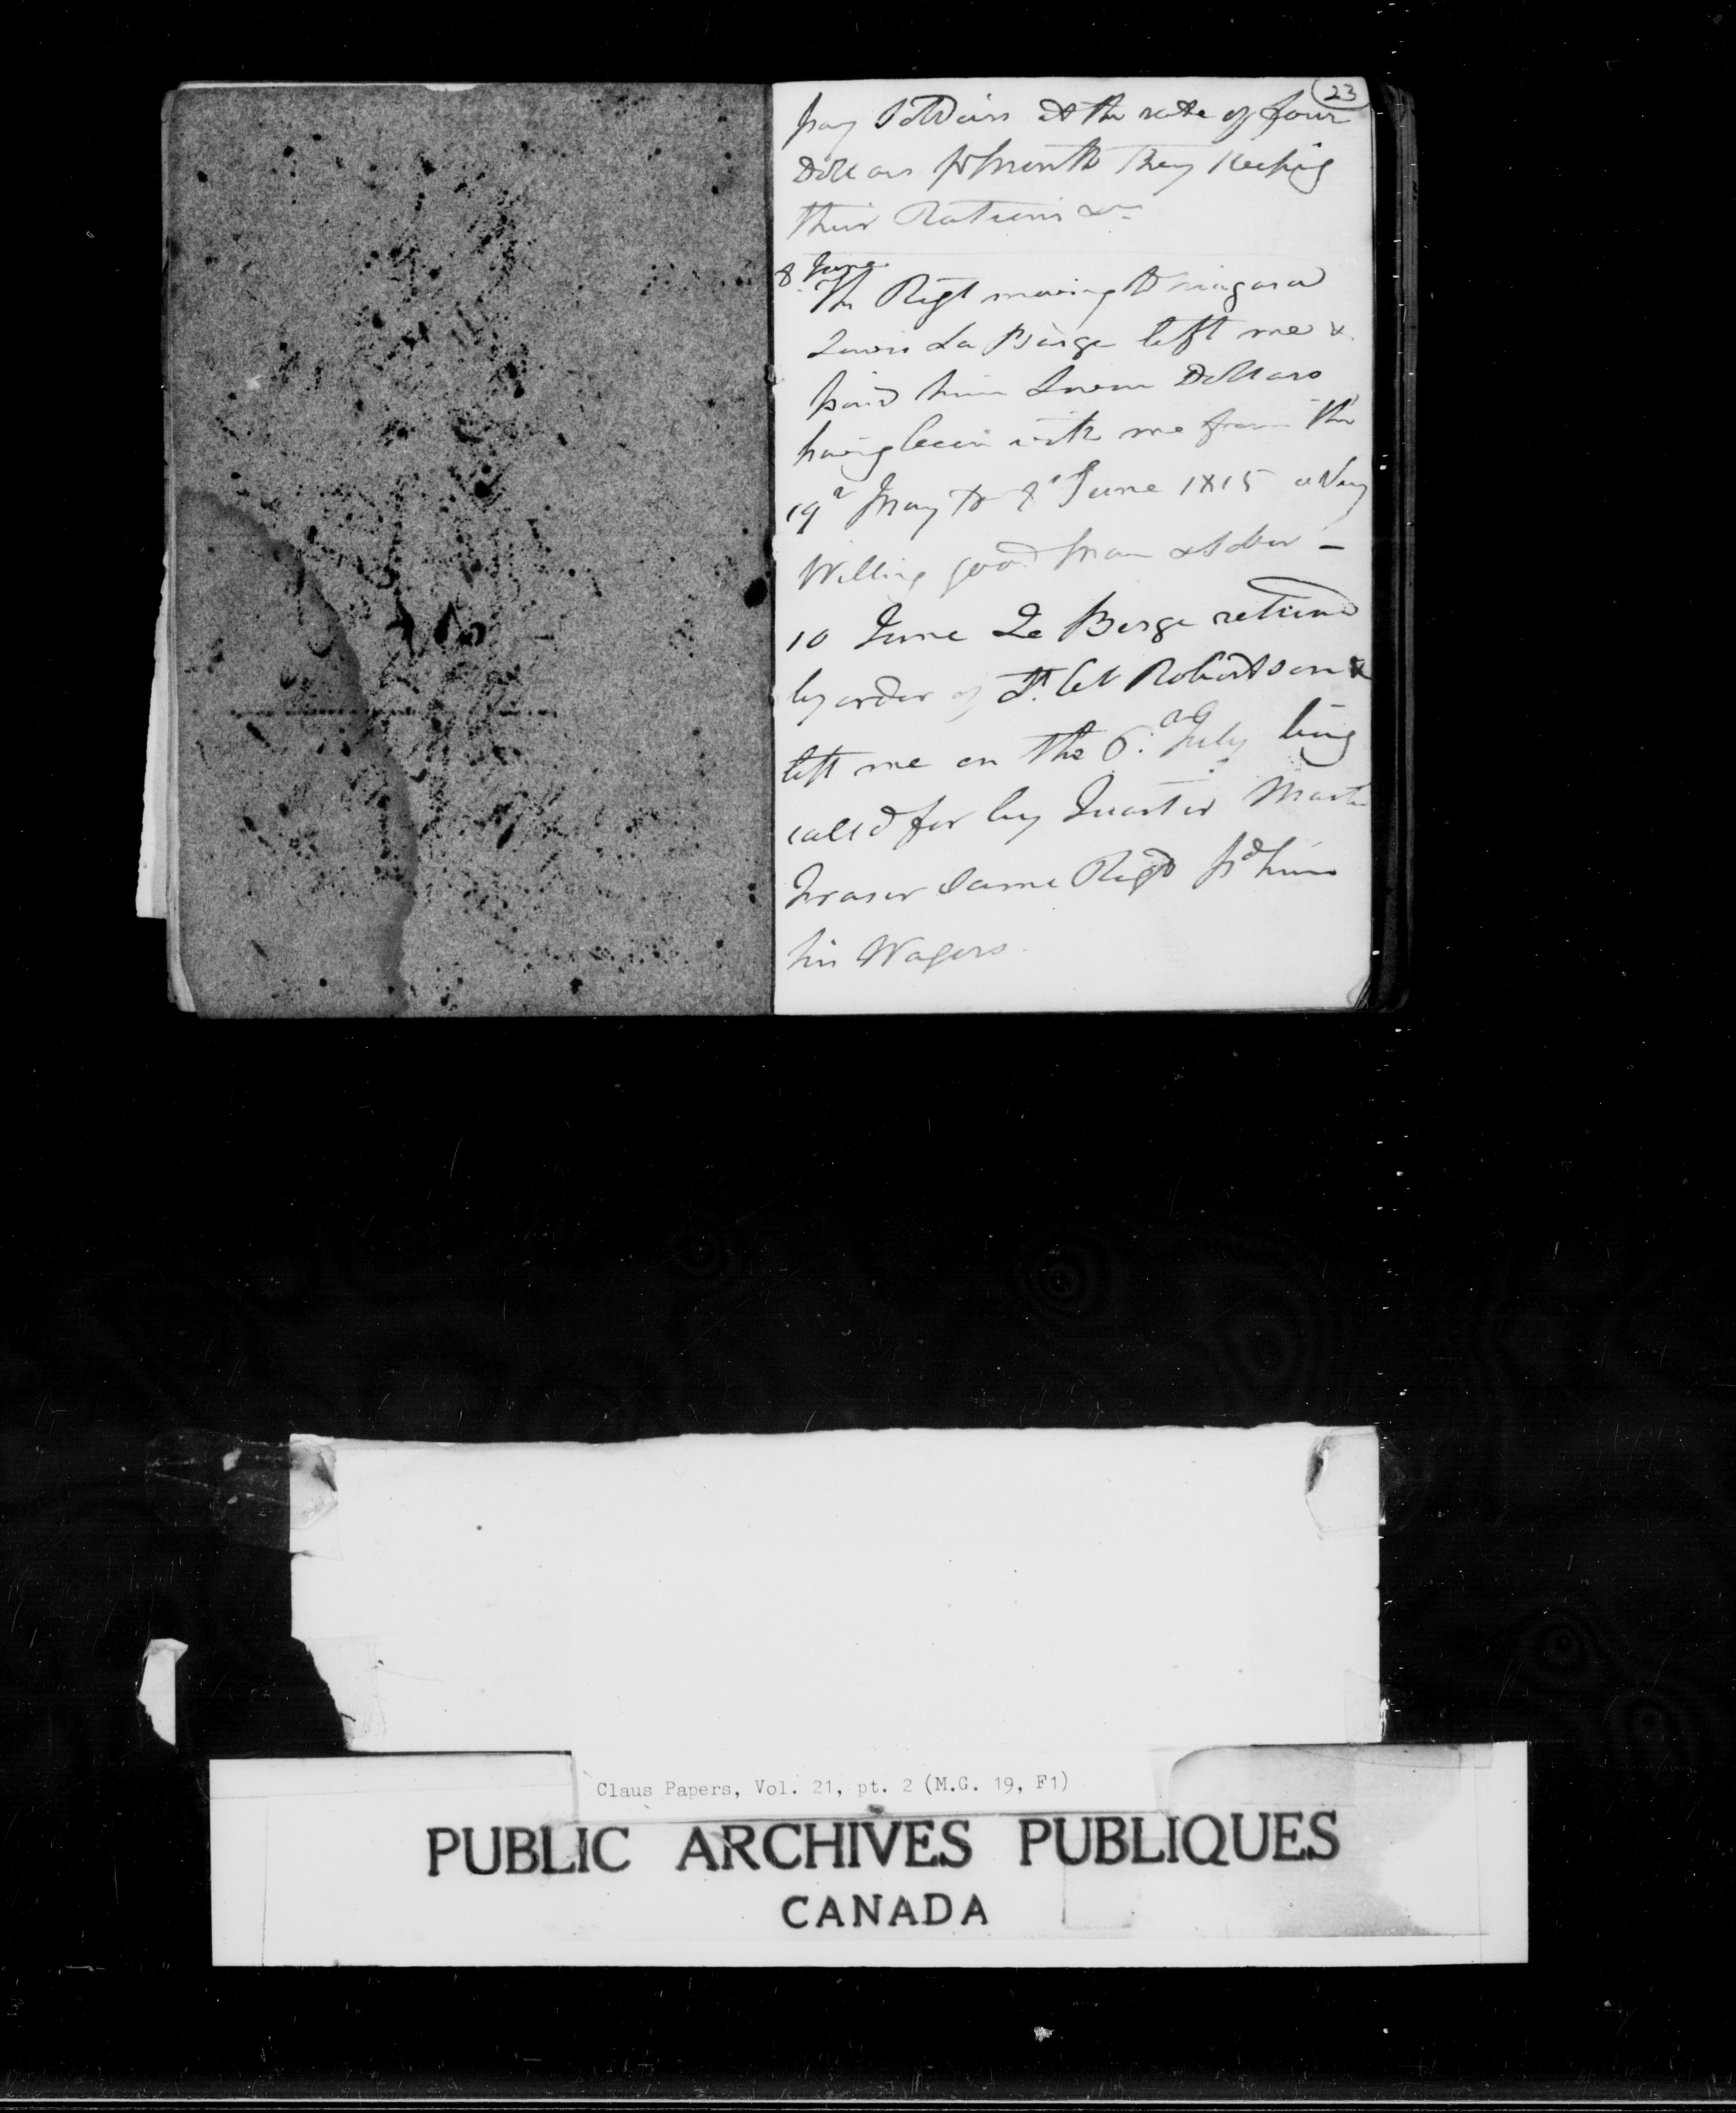 23
pay Soldiers at the rate of four
Dollars pr Month they keeping
their Rations &c
8 June
The Regt moving to niagara
Lewis La Barge left me &
paid him Dollars
having been with me from the
19 May to 8 June 1815 a Very
Willing good Man & Sober –
10 June Le Barge returnd
by order of Lt Col Robertson &
left me on the 6. July being
calld for by Quarter Master
Fraser same Regt pd him
his Wagers
Claus Papers, Vol. 21, pt. 2 (M.G. 19, F1)
PUBLIC ARCHIVES PUBLIQUES
CANADA